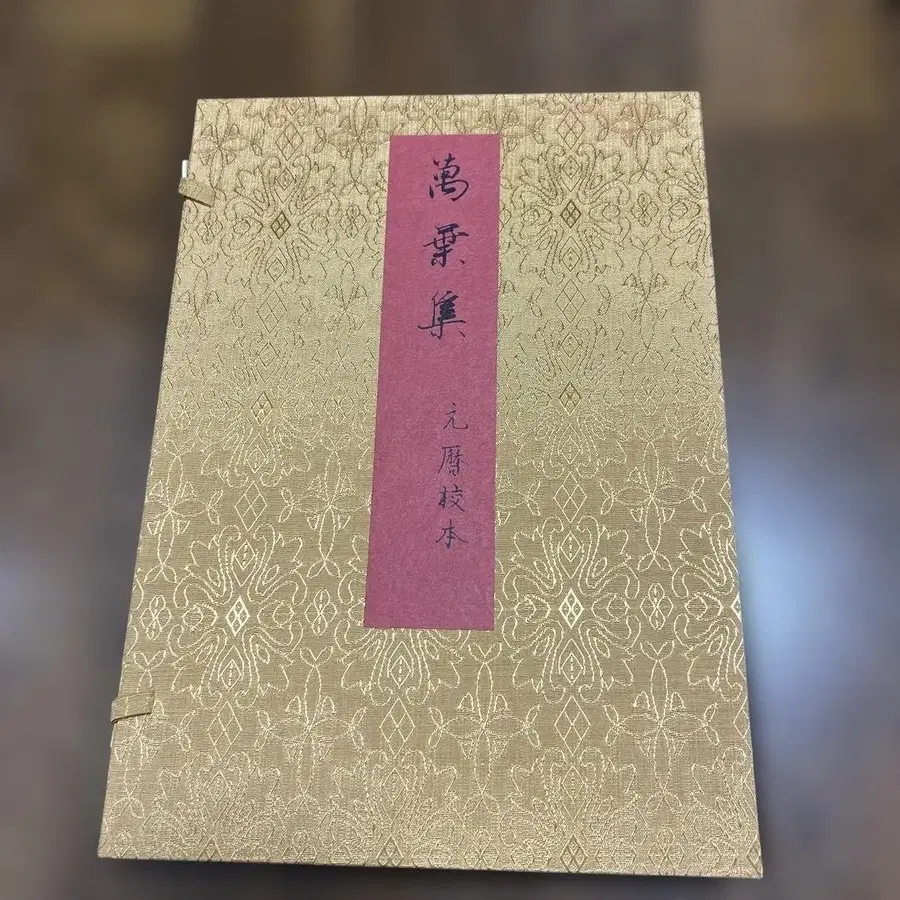 萬葉集
元暦校本